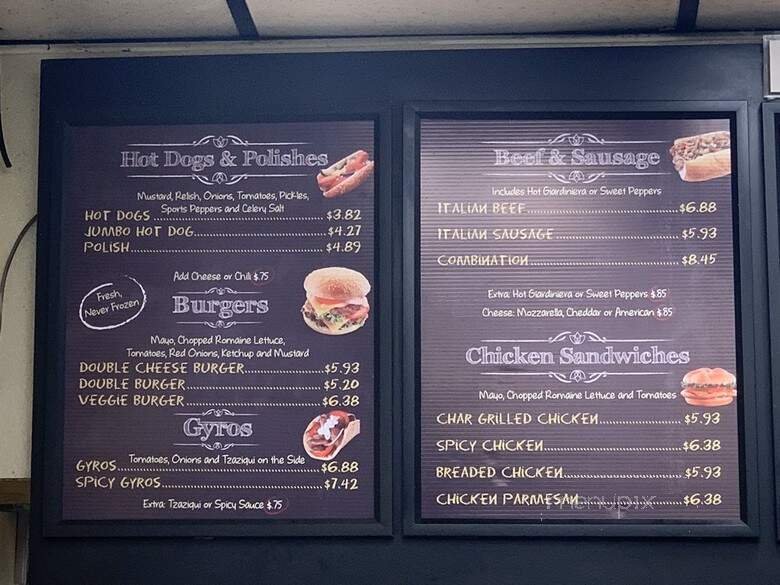 Hot Dogs & Polishes
Mustard, Relish, Onions, Tomatoes, Pickles,
Sports Peppers and Celery Salt
HOT DOGS $3.82
JUMBO HOT DOG $4.27
POLISH $4.89
Add Cheese or Chili $.75
Fresh,
Never Frozen
Burgers
Mayo, Chopped Romaine Lettuce,
Tomatoes, Red Onions, Ketchup and Mustard
DOUBLE CHEESE BURGER $5.93
DOUBLE BURGER $5.20
VEGGIE BURGER $6.38
Gyros
Tomatoes, Onions and Tzaziqui on the Side
GYROS $6.88
SPICY GYROS $7.42
Extra: Tzaziqui or Spicy Sauce $.75
Beef & Sausage
Includes Hot Giardiniera or Sweet Peppers
ITALIAN BEEF $6.88
ITALIAN SAUSAGE $5.93
COMBINATION $8.45
Extra: Hot Giardiniera or Sweet Peppers $.85
Cheese: Mozzarella, Cheddar or American $.85
Chicken Sandwiches
Mayo, Chopped Romaine Lettuce and Tomatoes
CHAR GRILLED CHICKEN $5.93
SPICY CHICKEN $6.38
BREADED CHICKEN $5.93
CHICKEN PARMESAN $6.38
menupix